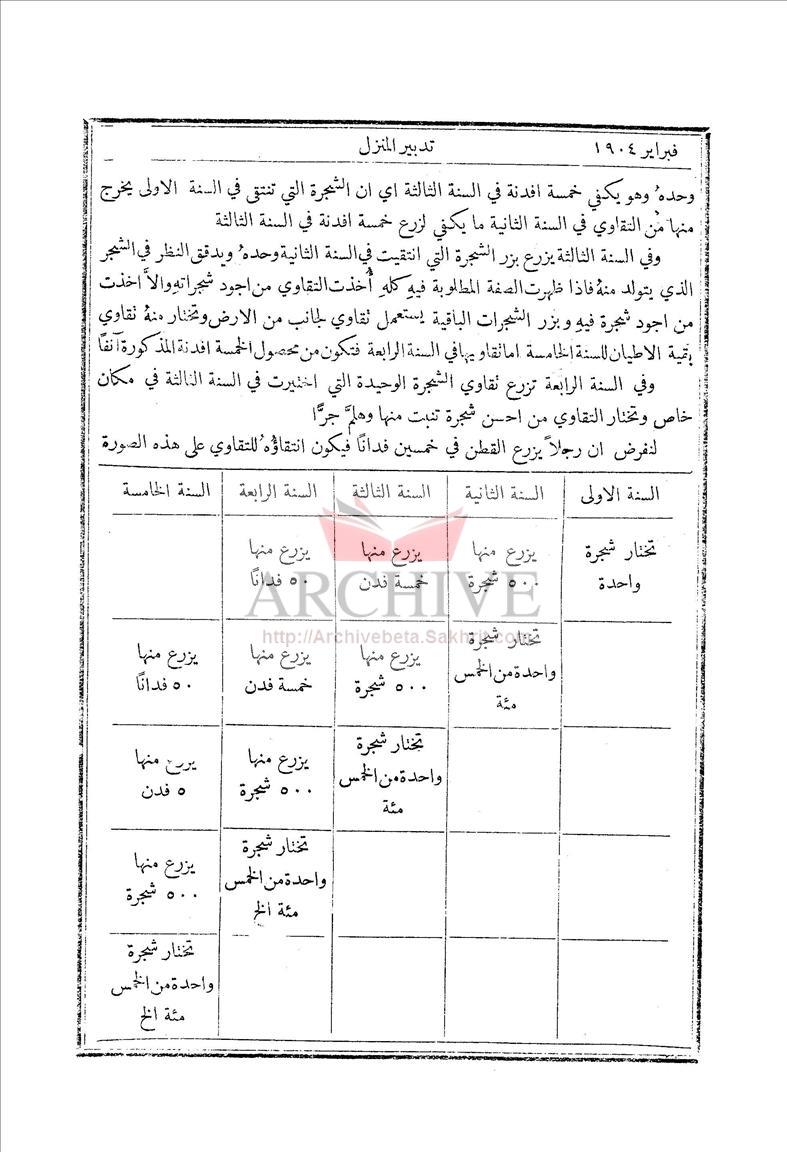 فبراير ١٩٠٤ تدبير المنزل
وحدهُ وهو يكفي خمسة افدنة في السنة الثالثة اي ان الشجرة التي تنتقى في السنة الاولى يخرج
منها من التقاوي في السنة الثانية ما يكفي لزرع خمسة افدنة في السنة الثالثة
وفي السنة الثالثة يزرع بزر الشجرة التي انتقيت في السنة الثانية وحدهُ ويدقق النظر في الشجر
الذي يتولد منهُ فاذا ظهرت الصفة المطلوبة فيهِ كلهِ أُخذت التقاوي من اجود شجراتهِ والاَّ اخذت
من اجود شجرة فيهِ وبزر الشجرات الباقية يستعمل تقاوي لجانب من الارض وتختار منهُ تقاوي
بقية الاطيان للسنة الخامسة اما تقاويها في السنة الرابعة فتكون من محصول الخمسة افدنة المذكورة آنفًا
وفي السنة الرابعة تزرع تقاوي الشجرة الوحيدة التي اختيرت في السنة الثالثة في مكان
خاص وتختار التقاوي من احسن شجرة تنبت منها وهلمَّ جرًّا
لنفرض ان رجلاً يزرع القطن في خمسين فدانًا فيكون انتقاؤهُ للتقاوي على هذه الصورة
السنة الاولى السنة الثانية السنة الثالثة السنة الرابعة السنة الخامسة
تختار شجرة يزرع منها يزرع منها يزرع منها
واحدة ٥٠٠ شجرة خمسة فدن ٥٠ فدانًا
ARCHIVE
http://Archivebeta.Sakhrit.com
تختار شجرة يزرع منها يزرع منها يزرع منها
واحدة من الخمس ٥٠٠ شجرة خمسة فدن ٥٠ فدانًا
مئة
تختار شجرة يزرع منها يزرع منها
واحدة من الخمس ٥٠٠ شجرة ٥ فدن
مئة
تختار شجرة يزرع منها
واحدة من الخمس ٥٠٠ شجرة
مئة الخ
تختار شجرة
واحدة من الخمس
مئة الخ